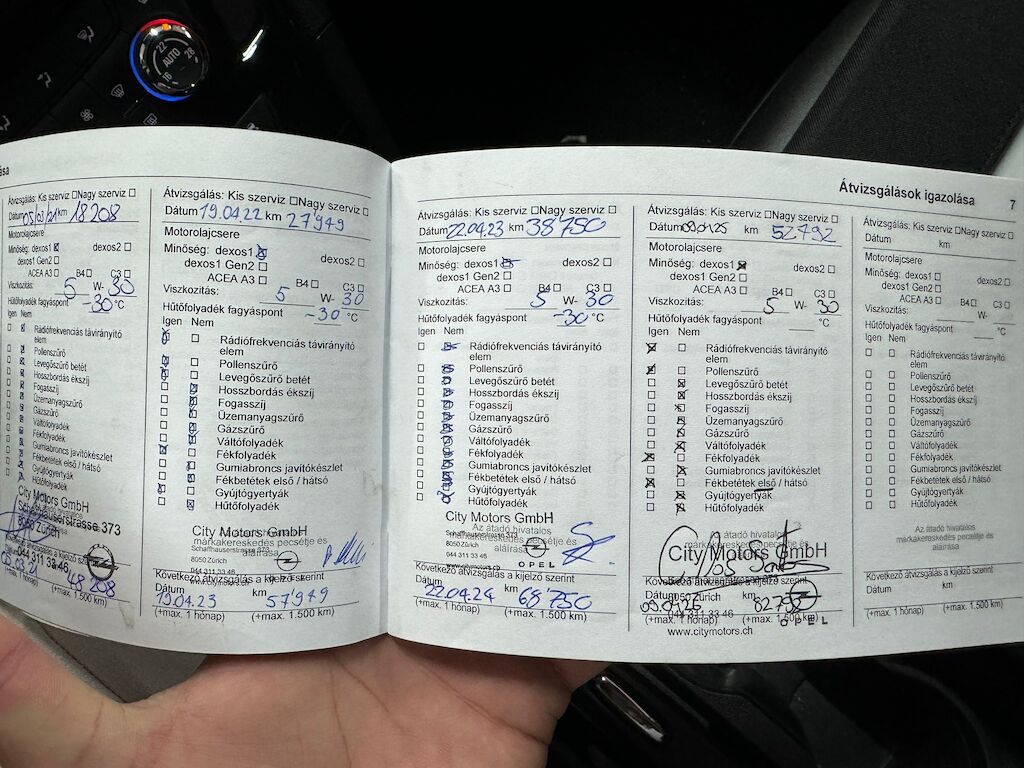 22 AUTO 28
16
Átvizsgálás: Kis szerviz ☐Nagy szerviz ☐
Dátum 05/03/21 km 18208
Motorolajcsere
Minőség: dexos1 ☒ dexos2 ☐
dexos1 Gen2 ☐
ACEA A3 ☐ B4 ☐ C3 ☐
Viszkozitás: 5 W- 30
Hűtőfolyadék fagyáspont -30 °C
Igen Nem
Rádiófrekvenciás távirányító
elem
Pollenszűrő
Levegőszűrő betét
Hosszbordás ékszíj
Fogasszíj
Üzemanyagszűrő
Gázszűrő
Váltófolyadék
Fékfolyadék
Gumiabroncs javítókészlet
Fékbetétek első / hátsó
Gyújtógyertyák
Hűtőfolyadék
City Motors GmbH
Schaffhauserstrasse 373
8050 Zürich
044 311 33 46
48 208
(+max. 1 hónap) (+max. 1.500 km)
Átvizsgálás: Kis szerviz ☐Nagy szerviz ☐
Dátum 19.04.22 km 27949
Motorolajcsere
Minőség: dexos1 ☒ dexos2 ☐
dexos1 Gen2 ☐
ACEA A3 ☐ B4 ☐ C3 ☐
Viszkozitás: 5 W- 30
Hűtőfolyadék fagyáspont -30 °C
Igen Nem
Rádiófrekvenciás távirányító
elem
Pollenszűrő
Levegőszűrő betét
Hosszbordás ékszíj
Fogasszíj
Üzemanyagszűrő
Gázszűrő
Váltófolyadék
Fékfolyadék
Gumiabroncs javítókészlet
Fékbetétek első / hátsó
Gyújtógyertyák
Hűtőfolyadék
City Motors GmbH
márkakereskedés pecsétje és
aláírása
Schaffhauserstrasse 373
8050 Zürich
044 311 33 46
Következő átvizsgálás a kijelző szerint
Dátum km
19.04.23 57949
(+max. 1 hónap) (+max. 1.500 km)
Átvizsgálások igazolása 7
Átvizsgálás: Kis szerviz ☐Nagy szerviz ☐
Dátum 22.04.23 km 38750
Motorolajcsere
Minőség: dexos1 ☒ dexos2 ☐
dexos1 Gen2 ☐
ACEA A3 ☐ B4 ☐ C3 ☐
Viszkozitás: 5 W- 30
Hűtőfolyadék fagyáspont -30 °C
Igen Nem
Rádiófrekvenciás távirányító
elem
Pollenszűrő
Levegőszűrő betét
Hosszbordás ékszíj
Fogasszíj
Üzemanyagszűrő
Gázszűrő
Váltófolyadék
Fékfolyadék
Gumiabroncs javítókészlet
Fékbetétek első / hátsó
Gyújtógyertyák
Hűtőfolyadék
City Motors GmbH
Az átadó hivatalos
márkakereskedés pecsétje és
aláírása
Schaffhauserstrasse 373
8050 Zürich
044 311 33 46
OPEL
Következő átvizsgálás a kijelző szerint
Dátum km
22.04.24 68750
(+max. 1 hónap) (+max. 1.500 km)
Átvizsgálás: Kis szerviz ☐Nagy szerviz ☐
Dátum 09.01.25 km 52792
Motorolajcsere
Minőség: dexos1 ☒ dexos2 ☐
dexos1 Gen2 ☐
ACEA A3 ☐ B4 ☐ C3 ☐
Viszkozitás: 5 W- 30
Hűtőfolyadék fagyáspont °C
Igen Nem
Rádiófrekvenciás távirányító
elem
Pollenszűrő
Levegőszűrő betét
Hosszbordás ékszíj
Fogasszíj
Üzemanyagszűrő
Gázszűrő
Váltófolyadék
Fékfolyadék
Gumiabroncs javítókészlet
Fékbetétek első / hátsó
Gyújtógyertyák
Hűtőfolyadék
City Motors GmbH
Következő átvizsgálás a kijelző szerint
Dátum km
8050 Zürich
09.01.26
044 311 33 46
OPEL
(+max. 1 hónap) (+max. 1.500 km)
www.citymotors.ch
Átvizsgálás: Kis szerviz ☐Nagy szerviz ☐
Dátum km
Motorolajcsere
Minőség: dexos1 ☐ dexos2 ☐
dexos1 Gen2 ☐
ACEA A3 ☐ B4 ☐ C3 ☐
Viszkozitás: W-
Hűtőfolyadék fagyáspont °C
Igen Nem
Rádiófrekvenciás távirányító
elem
Pollenszűrő
Levegőszűrő betét
Hosszbordás ékszíj
Fogasszíj
Üzemanyagszűrő
Gázszűrő
Váltófolyadék
Fékfolyadék
Gumiabroncs javítókészlet
Fékbetétek első / hátsó
Gyújtógyertyák
Hűtőfolyadék
Az átadó hivatalos
márkakereskedés pecsétje és
aláírása
Következő átvizsgálás a kijelző szerint
Dátum km
(+max. 1 hónap) (+max. 1.500 km)